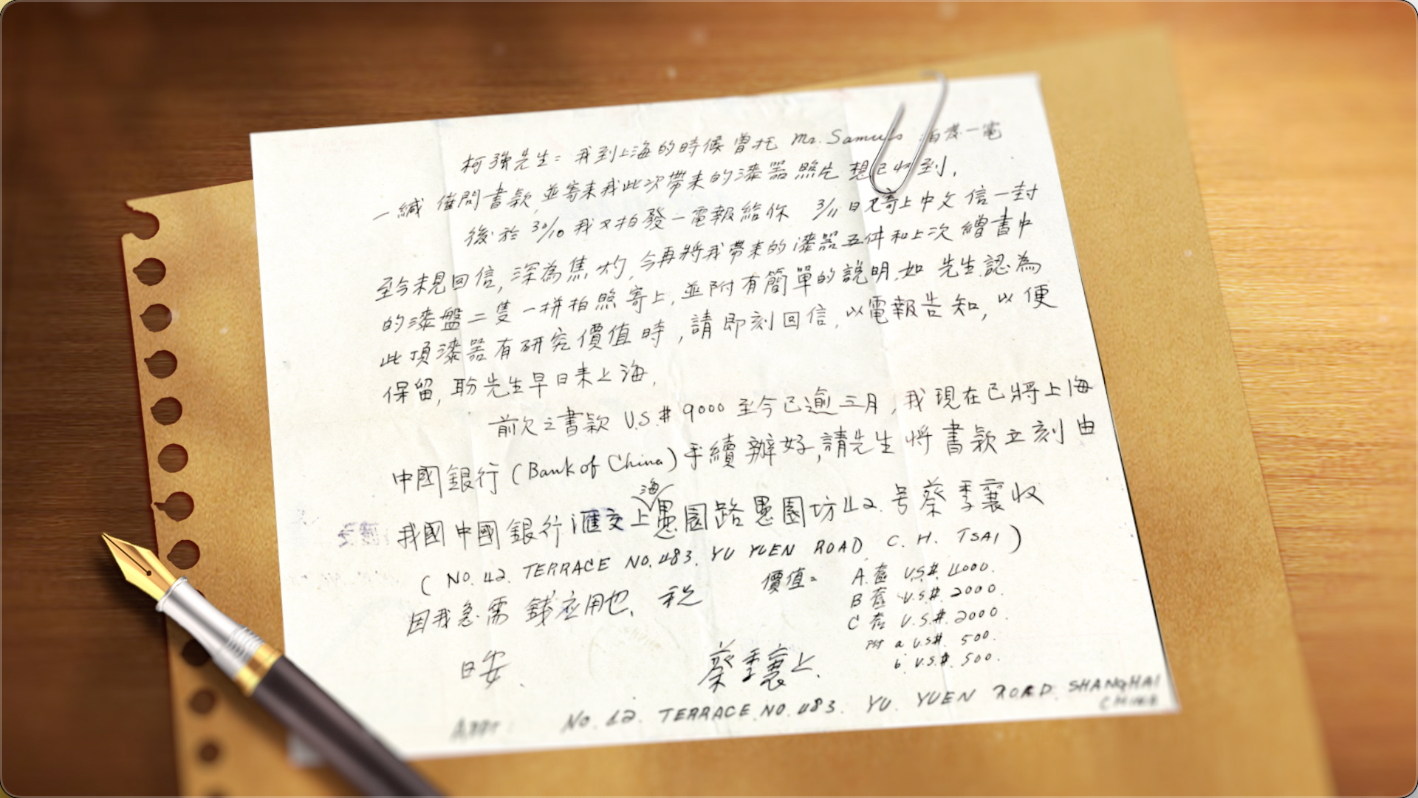 柯強先生：我到上海的時候曾托 Mr. Samuels 一電
一緘 催問書款，並寄來我此次帶來的漆器照片 想已收到．
後於 30/10 我又拍發一電報給你 3/11 日又寄上中文信一封
至今未見回信，深為焦灼，今再將我帶來的漆器五件和上次繒書中
的漆盤二隻一拼拍照寄上，並附有簡單的説明，如 先生認為
此項漆器有研究價值時，請即刻回信，以電報告知，以便
保留，盼先生早日來上海．
前欠之書款 U.S.$ 9000 至今已逾三月，我現在已將上海
中國銀行 (Bank of China) 手續辦好，請先生將書款立刻由
我國中國銀行匯交上海愚園路愚園坊42.号蔡季襄收
( No. 42. TERRACE No. 483. YU YUEN ROAD. C. H. TSAI )
因我急需錢应用也． 祝
日安．
價值=
A. 壺 U.S.$. 4000.
B 壺 U.S.$. 2000.
C 壺 U.S.$. 2000.
a U.S.$. 500.
b. U.S.$. 500.
蔡季襄上．
No. 42. TERRACE. No. 483. YU. YUEN ROAD. SHANGHAI
CHINA